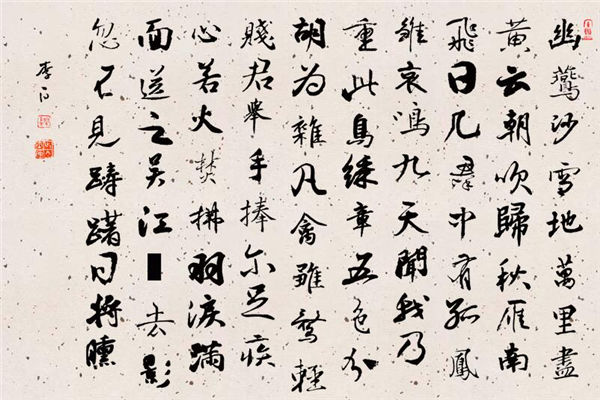 幽鷰沙雪地萬里盡
黄云朝吹歸秋雁南
飛日几群中有孤鳳
雛哀鳴九天聞我乃
重此鳥綵章五色分
胡为雜凡禽雖鶩輕
賤君舉手捧尔足疾
心若火焚拂羽淚滿
面送之吴江去影
忽不見躊躇日將曛
李白